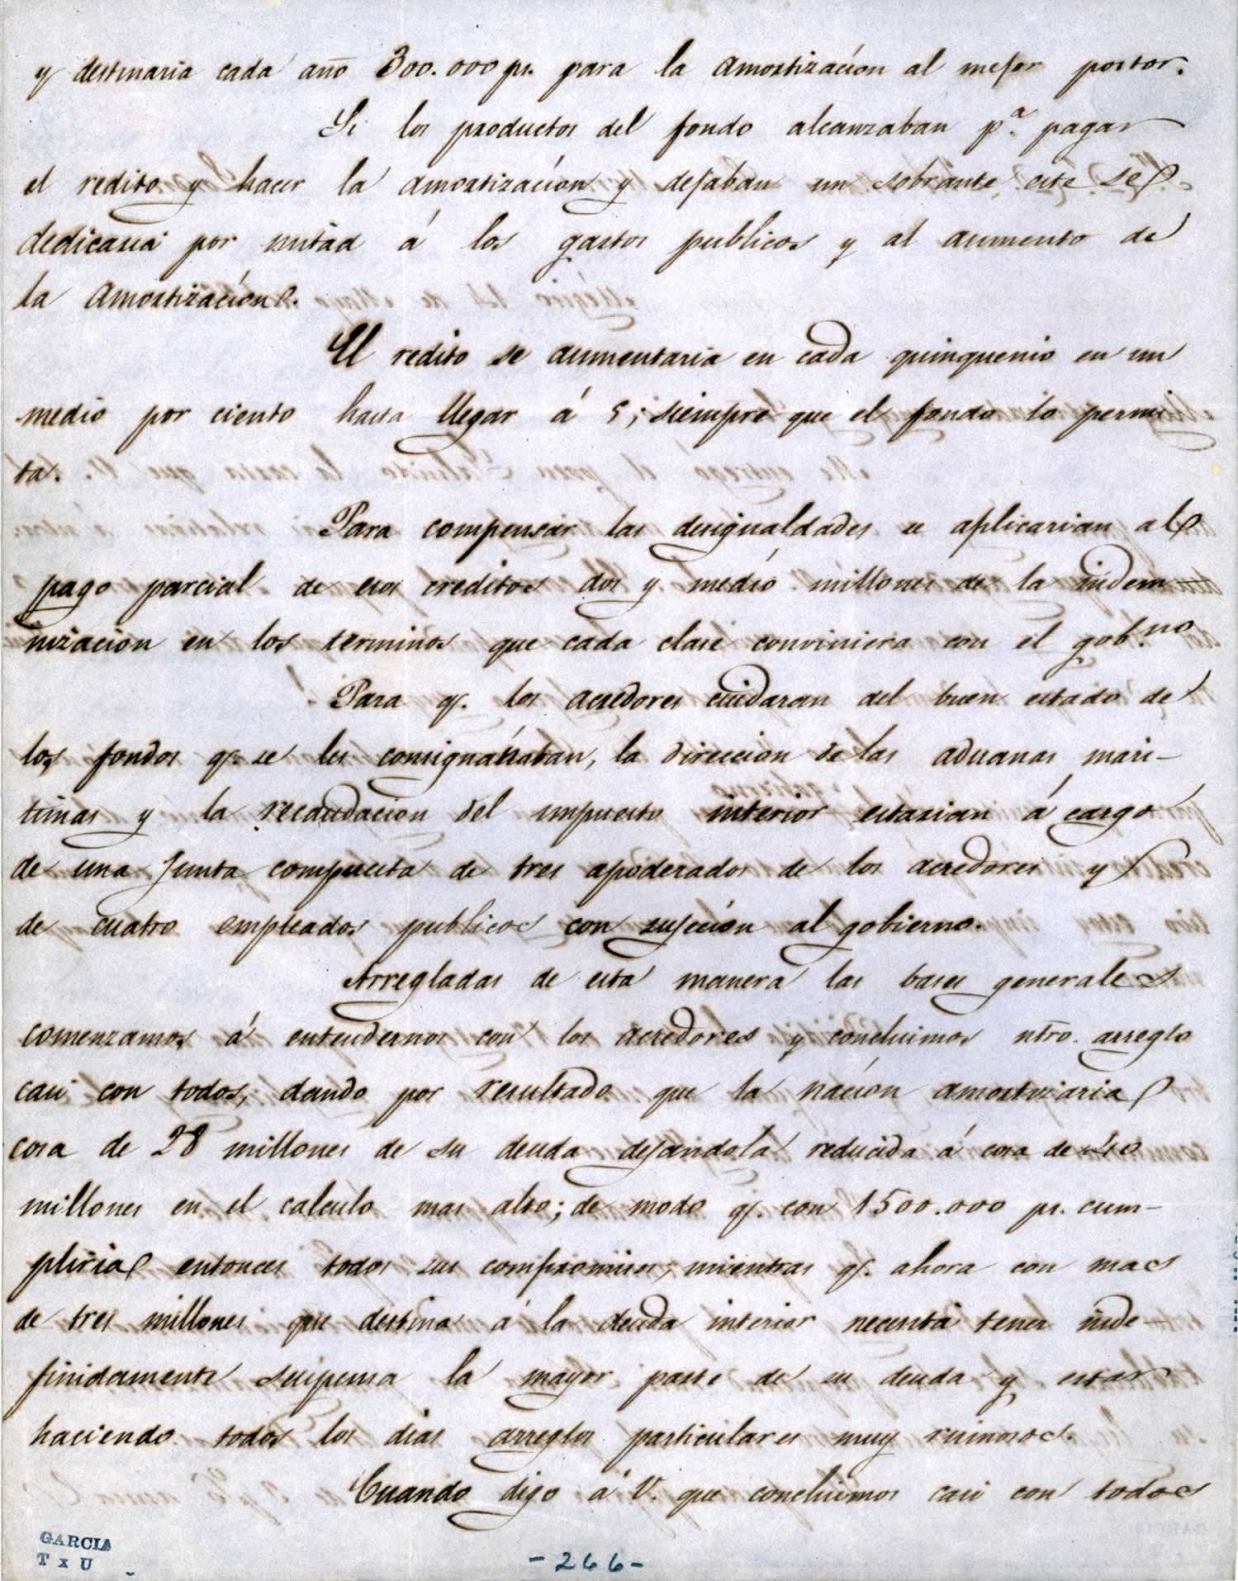 y destinaria cada año 300.000 ps. para la amortización al mejor postor.
Si los productos del fondo alcanzaban pª. pagar
el redito y hacer la amortización y dejaban un sobrante este se
dedicaria por mitad á los gastos publicos y al aumento de
la amortización.
El redito se aumentaria en cada quinquenio en un
medio por ciento hasta llegar á 5; siempre que el fondo lo permi
ta.
Para compensar las desigualdades se aplicarian al
pago parcial de esos creditos dos y medio millones de la indem
nizacion en los terminos que cada clase conviniera con el gob.no
Para q. los acredores cuidaran del buen estado de
los fondos q. se les consignaban, la direccion de las aduanas mari-
timas y la recaudacion del impuesto interior estarian á cargo
de una Junta compuesta de tres apoderados de los acredores y
de cuatro empleados publicos con sujecion al gobierno.
Arregladas de esta manera las bases generales
comenzamos á entendernos con los acredores y concluimos ntro. arreglo
casi con todos, dando por resultado que la nacion amortizaria
cosa de 28 millones de su deuda dejandola reducida á cosa de 40
millones en el calculo mas alto; de modo q. con 1500.000 ps. cum-
pliria entonces todos sus compromisos, mientras q. ahora con mas
de tres millones que destina á la deuda interior necesita tener inde-
finidamente suspensa la mayor parte de su deuda y estar
haciendo todos los dias arreglos particulares muy ruinosos.
Cuando digo á V. que concluimos casi con todos
GARCIA
T x U
-266-